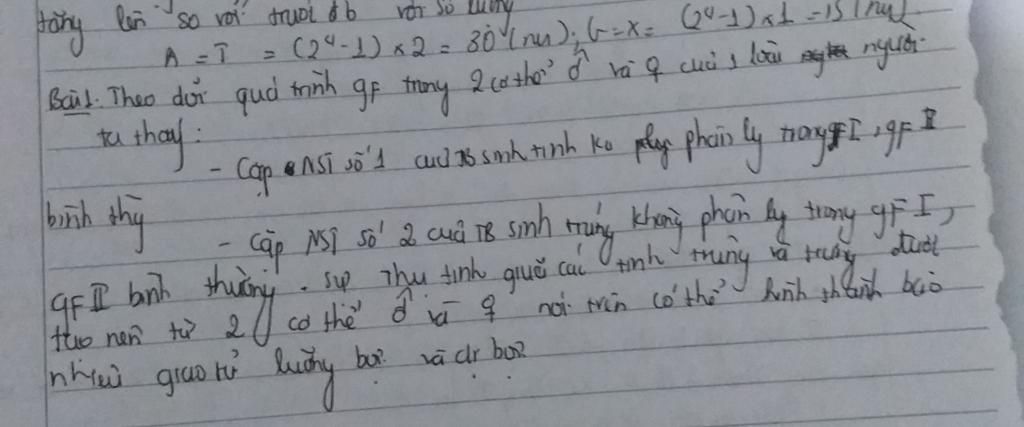 tăng lên so với trước đb với số lượng
A = T = (2⁴-1) x 2 = 30 (nu); G = X = (2⁴-1) x 1 = 15 (nu)
Bài 1. Theo dõi quá trình gF trong 2 cơ thể ♂ và ♀ của 1 loài người
ta thấy:
- Cặp NST số 1 của TB sinh tinh ko phân ly trong gF I, gF II
bình thg
- Cặp NST số 2 của TB sinh trứng không phân ly trong gF I,
gF II bình thường. Sự thụ tinh giữa các tinh trùng và trứng được
tạo nên từ 2 cơ thể ♂ và ♀ nói trên có thể hình thành bao
nhiêu giao tử lưỡng bội và dị bội